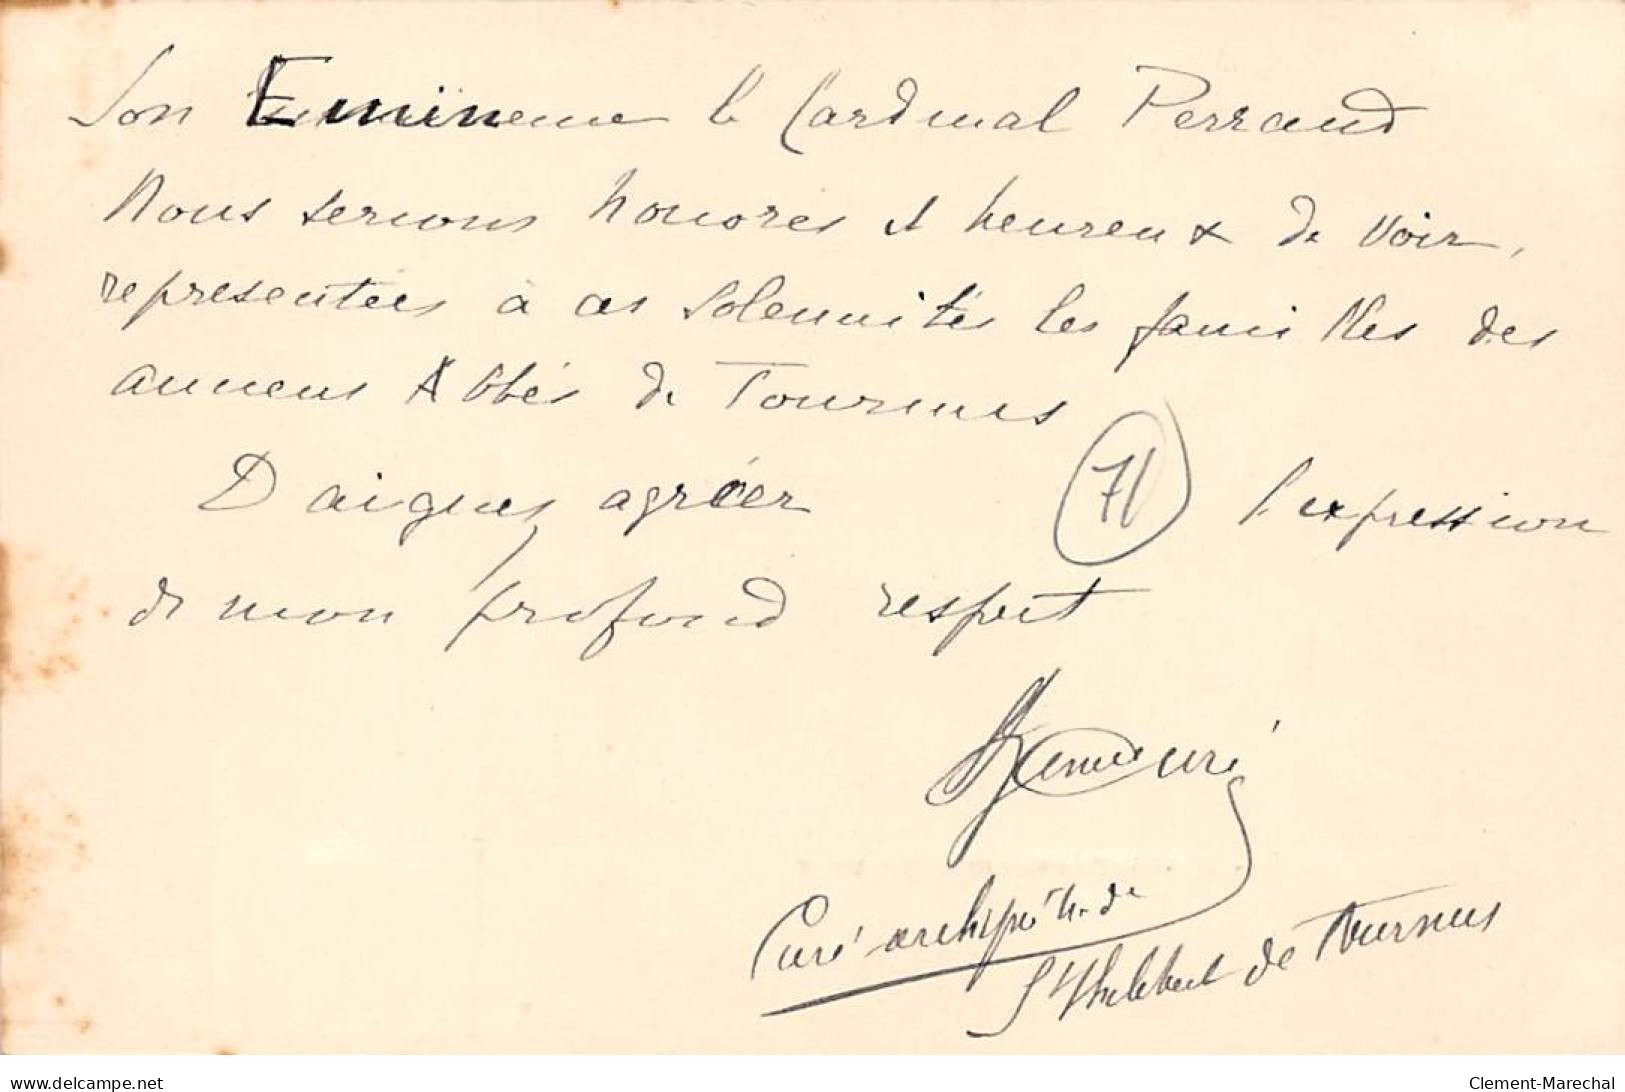 Son Eminence le Cardinal Perraud
Nous serions honorés et heureux de voir,
representées à ces solennités les familles des
anciens Abbés de Tournus
Daignez agréer l'expression
71
de mon profond respect
curé
Curé archiprêtre de
St Philibert de Tournus
delcampe.net
Clement-Marechal